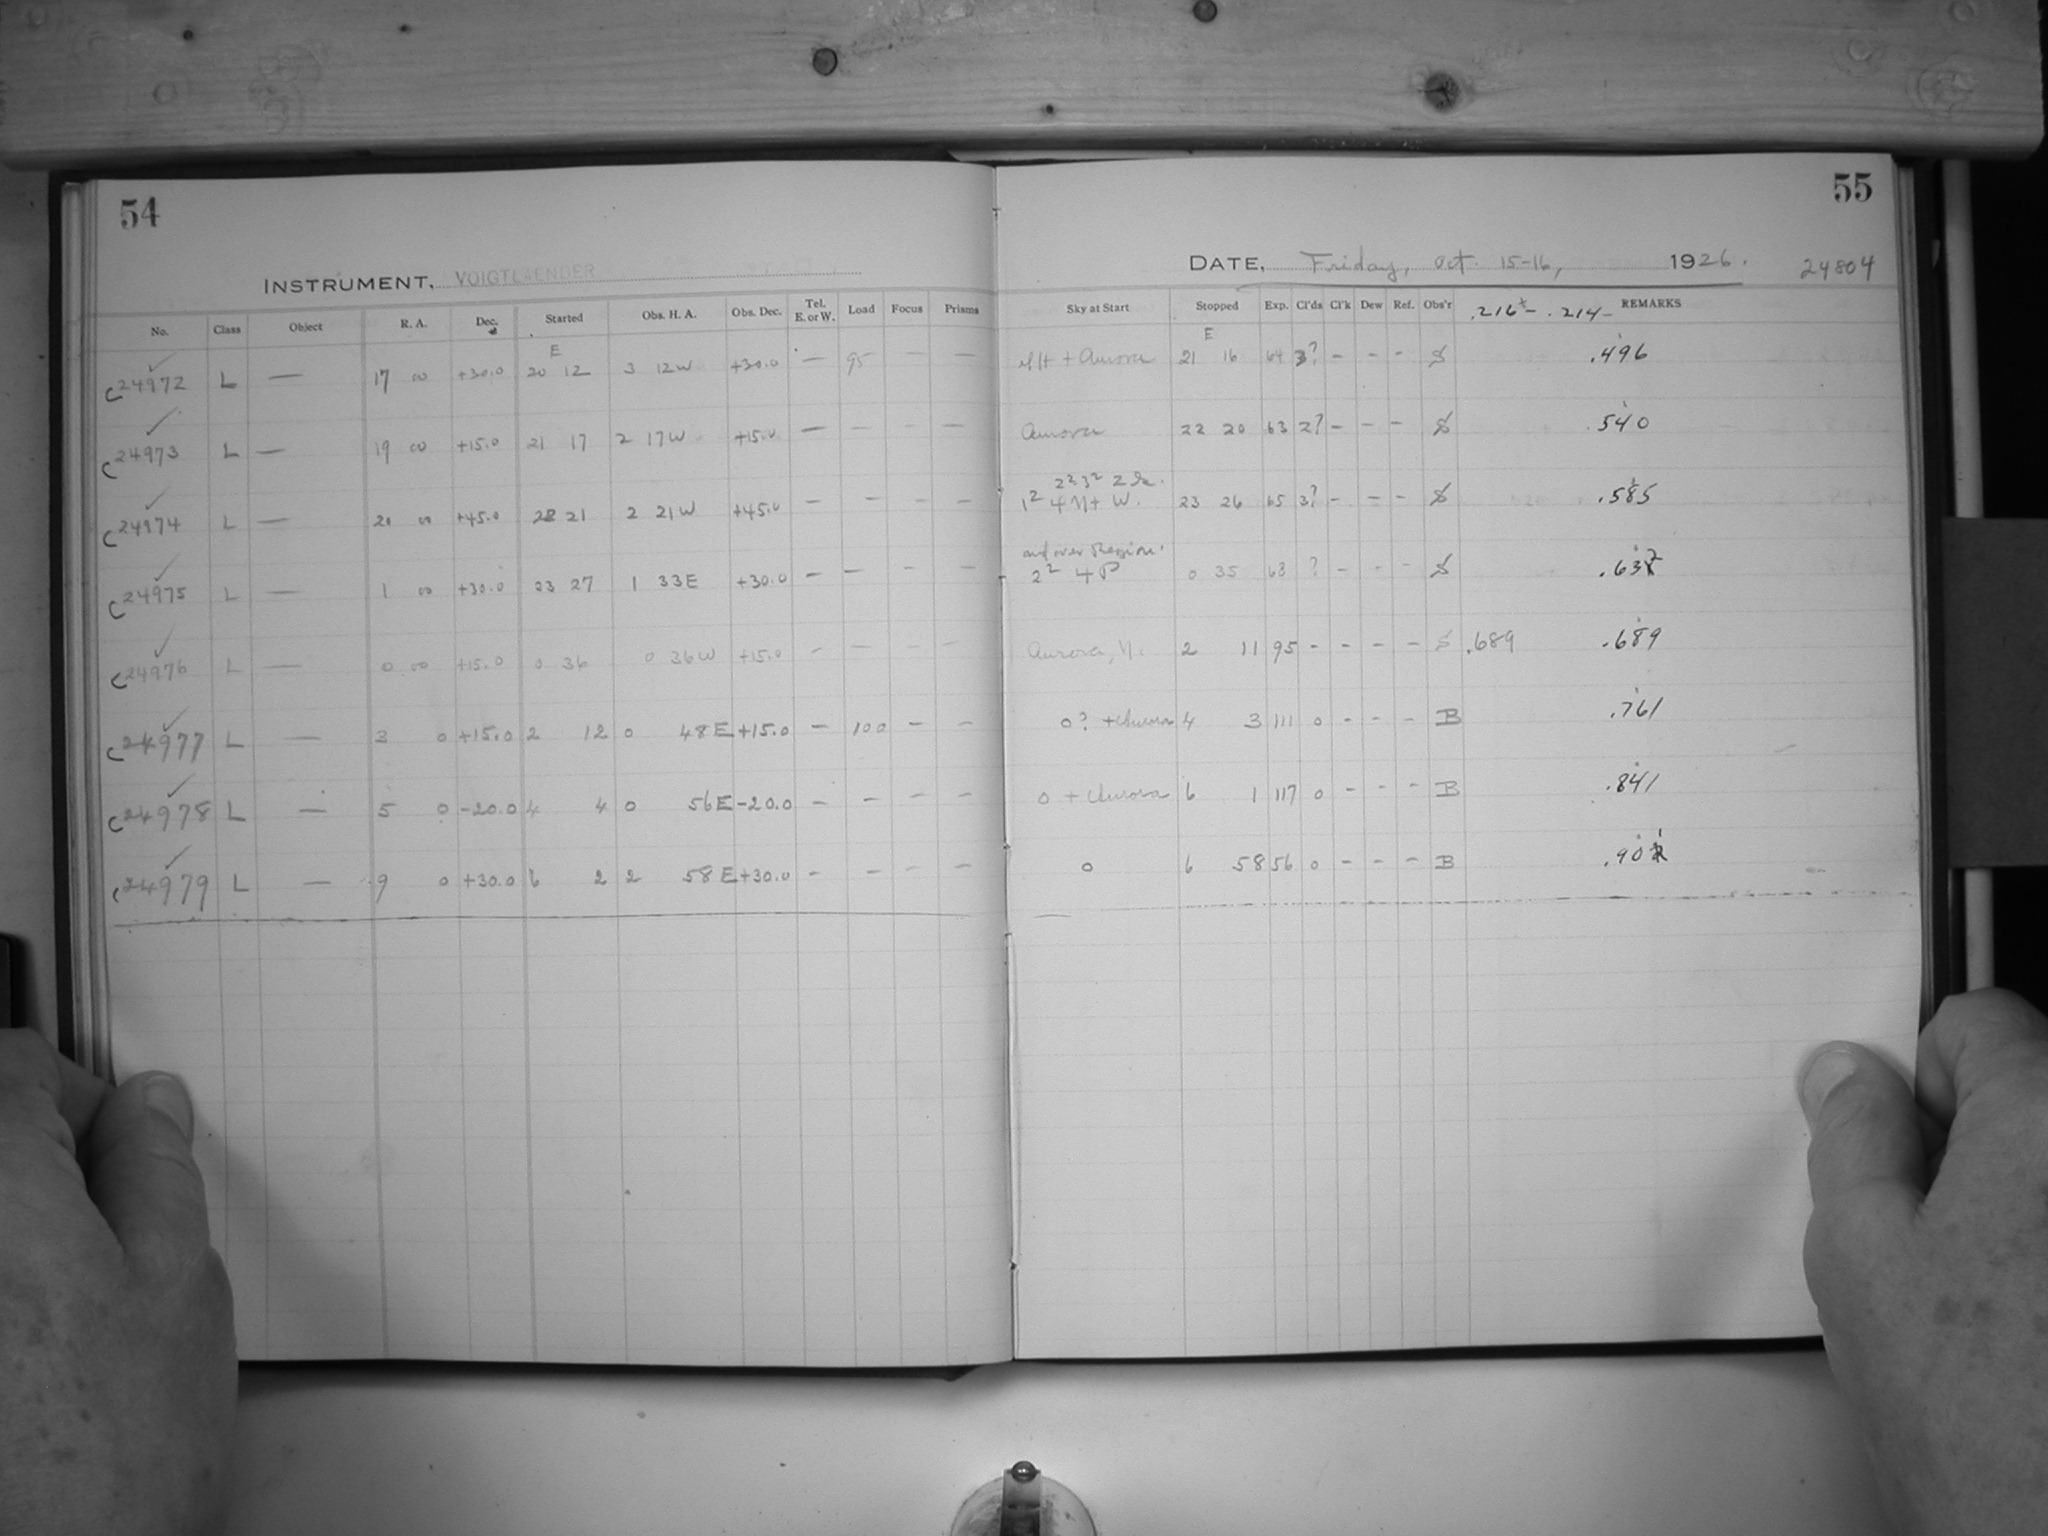 54
INSTRUMENT, VOIGTLAENDER
No. Class Object R. A. Dec. Started Obs. H. A. Obs. Dec. Tel. E. or W. Load Focus Prisms
E
C24972 L — 17 00 +30.0 20 12 3 12W +30.0 — 95 — —
C24973 L — 19 00 +15.0 21 17 2 17W +15.0 — — — —
C24974 L — 20 00 +45.0 22 21 2 21W +45.0 — — — —
C24975 L — 1 00 +30.0 23 27 1 33E +30.0 — — — —
C24976 L — 0 00 +15.0 0 36 0 36W +15.0 — — — —
C24977 L — 3 0 +15.0 2 12 0 48E +15.0 — 100 — —
C24978 L — 5 0 -20.0 4 4 0 56E -20.0 — — — —
C24979 L — 9 0 +30.0 6 2 2 58E +30.0 — — — —
55
DATE, Friday, Oct. 15-16, 1926. 24804
Sky at Start Stopped Exp. Cl'ds Cl'k Dew Ref. Obs'r .216+- .214- REMARKS
E
+ Aurora 21 16 64 3? - - - S .496
Aurora 22 20 63 2? - - - S .540
2² 3² 2
1² 4 N+ W. 23 26 65 3? - - - S .585
and over Region.
2² 4 P 0 35 68 ? - - - S .637
Aurora, N. 2 11 95 - - - - S .689 .689
0? + Aurora 4 3 111 0 - - - B .761
0 + Aurora 6 1 117 0 - - - B .841
0 6 58 56 0 - - - B .901